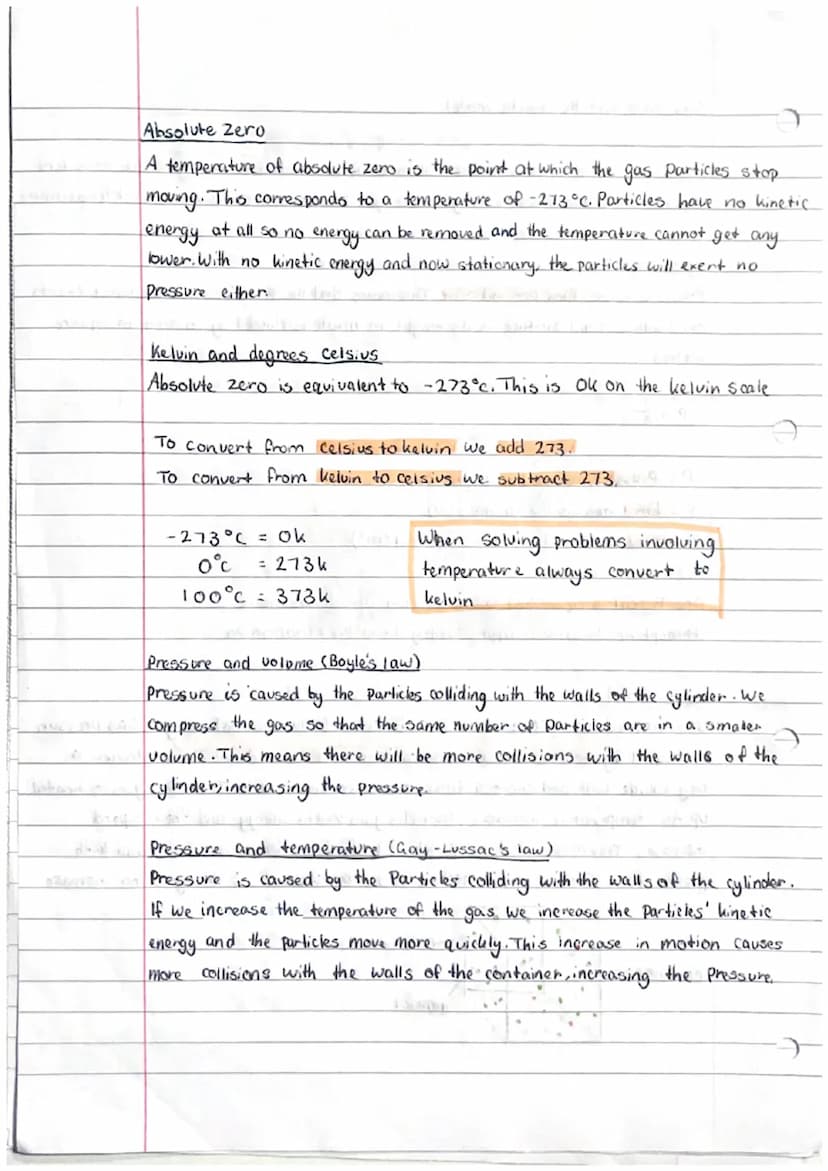 Absolute Zero
A temperature of absolute zero is the point at which the gas particles stop
moving. This corresponds to a temperature of -273°C. Particles have no kinetic
energy at all so no energy can be removed and the temperature cannot get any
lower. With no kinetic energy and now stationary, the particles will exert no
pressure either.
Kelvin and degrees Celsius
Absolute zero is equivalent to -273°C. This is 0k on the kelvin scale
To convert from celsius to kelvin we add 273.
To convert from kelvin to celsius we subtract 273.
-273°C = 0k
0°C = 273k
100°C = 373k
When solving problems involving
temperature always convert to
kelvin
Pressure and volome (Boyle's law)
Pressure is caused by the particles colliding with the walls of the cylinder. We
compress the gas so that the same number of particles are in a smaller
volume. This means there will be more collisions with the walls of the
cylinder, increasing the pressure.
Pressure and temperature (Gay-Lussac's law)
Pressure is caused by the Particles colliding with the walls of the cylinder.
If we increase the temperature of the gas, we increase the Particles' kinetic
energy and the particles move more quickly. This increase in motion causes
more collisions with the walls of the container, increasing the Pressure.